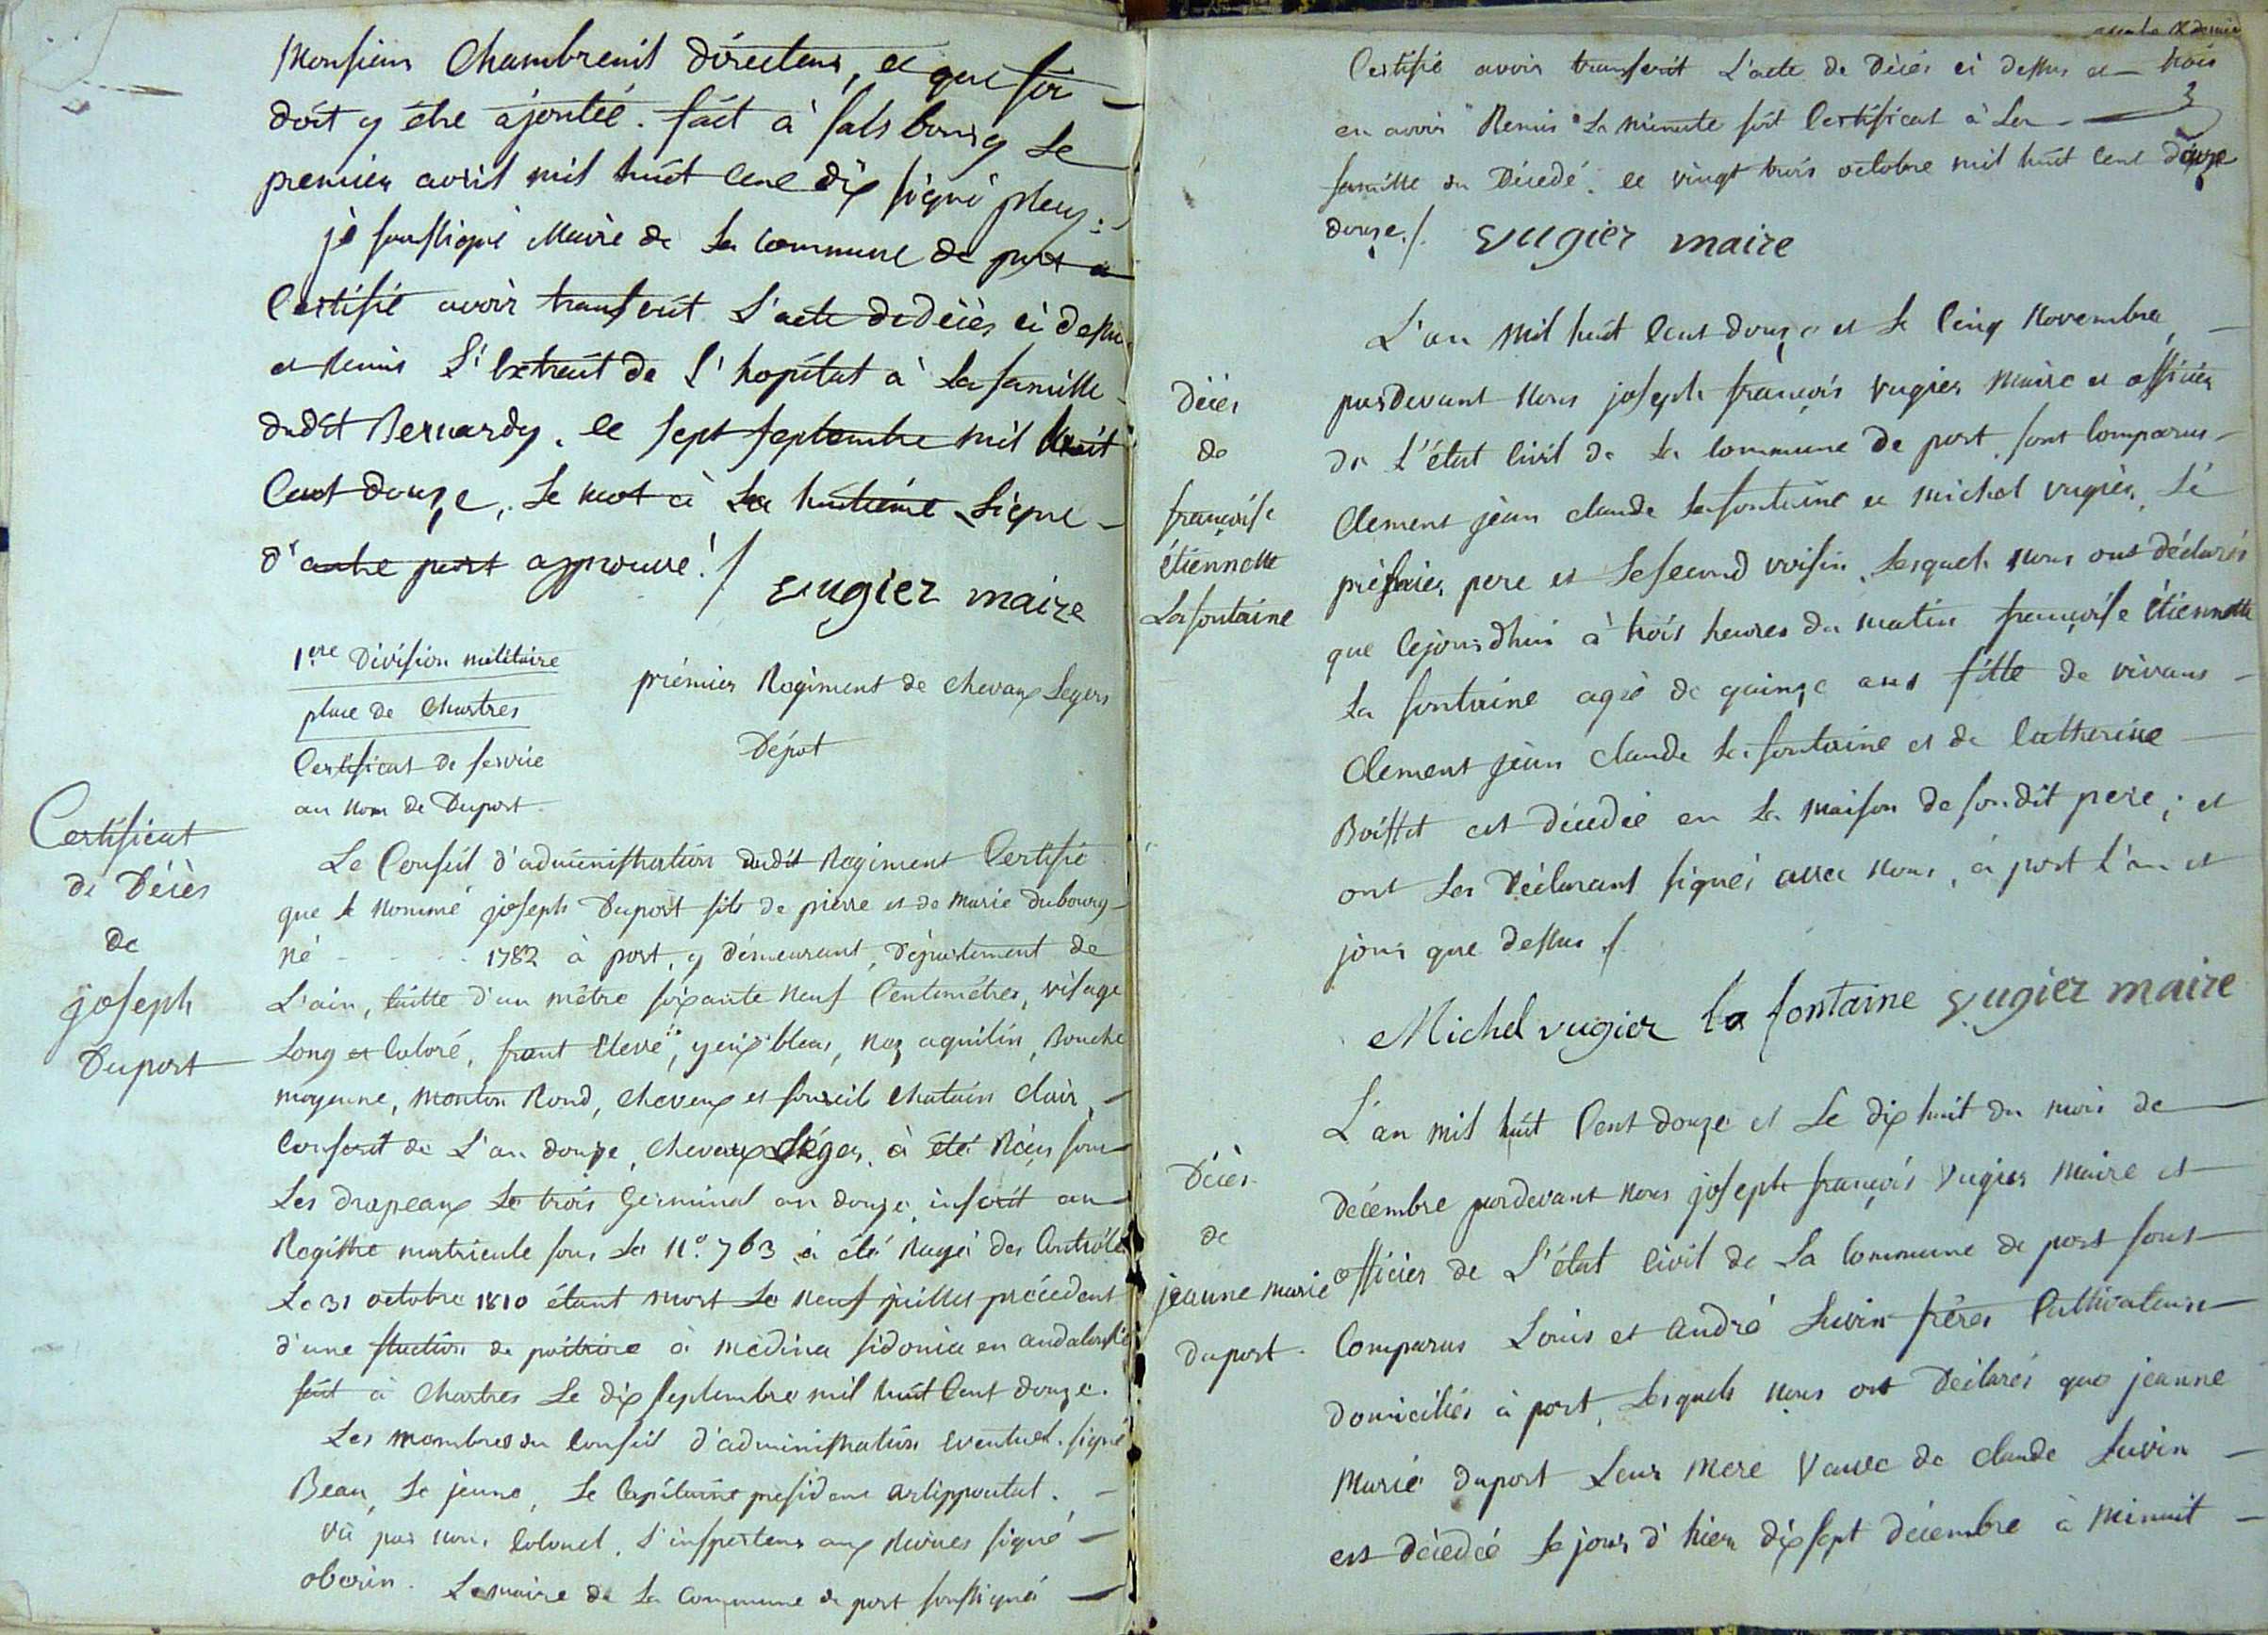 Monsieur Chambrenil directeur, et que foi
doit y être ajoutée. fait à salsbourg le
premier avril mil huit cent dix signé
jè soussigné Maire de la commune de port a
Certifié avoir transcrit L'acte de décès ci dessus
et remis L'Extrait de L'hopital à la famille
dudit Bernardy. ce sept septembre mil huit
Cent douze, le mot à la huitième Ligne
d'autre part approuvé ./
vugier maire
1ere Division militaire
place de Chartres
Certificat de service
au nom de Duport
prémier Régiment de chevaux Legers
Dépot
Certificat
de Décès
de
joseph
Duport
Le Conseil d'administration dudit Regiment Certifie
que le nommé joseph Duport fils de pierre et de Marie dubourg
né - - - - 1782 à port, y démeurant, Département de
L'ain, taille d'un mètre soixante neuf Centimétres, visage
Long et Coloré, front élevé, yeux bleus, nez aquilin, Bouche
moyenne, menton Rond, cheveux et sourcil chatain clair,
Conscrit de L'an douze, chevaux Léger, à été Réçu sous
Les drapeaux Le trois Germinal an douze, inscrit au
Régistre matricule sous Le N.° 763 à été Rayé des Controles
Le 31 octobre 1810 étant mort Le neuf juillet précédent
d'une fluction de poitrine à médina sidonia en andalousie
fait à Chartres Le dix septembre mil huit Cent douze.
Les membres du Conseil d'administration Eventuel. signé
Beau, Le jeune, Le Capitaine president
Vû par nous Colonel, L'inspecteur aux Revues signé
oberin. Le maire de La Commune de port soussigné
Certifié avoir transcrit L'acte de Décés ci dessus et
en avoir Remis La minute soit Certificat à La
famille du Décedé. ce vingt trois octobre mil huit Cent douze
douze ./. vugier maire
Décés
de
françoise
étiennette
La fontaine
L'an mil huit Cent douze et le Cinq Novembre,
pardevant Nous joseph françois vugier Maire et officier
de L'état Civil de La Commune de port sont Comparus
Clement jean claude La fontaine et michel vugier, Lé
prémier, pere et Le second voisin, Lesquels nous ont déclarés
que Cejourdhui à trois heures du matin françoise étiennette
La fontaine agée de quinze ans fille de vivans
Clement jean claude La fontaine et de Catherine
est décedée en La maison de sondit pere; et
ont Les Déclarant signés avec nous, à port L'an et
jour que dessus ./.
Michel vugier la fontaine vugier maire
Décès
de
jeanne marie
duport.
L'an mil huit Cent douze et Le dix huit du mois de
décembre pardevant nous joseph françois vugier Maire et
officier de L'état Civil de La Commune de port sont
Comparus Louis et andré Suvin frères Cultivateurs
domiciliés à port, Lesquels nous ont Déclarés que jeanne
Marié duport Leur mere Veuve de claude Suvin
est décedée Le jour d'hier dix sept décembre à minuit